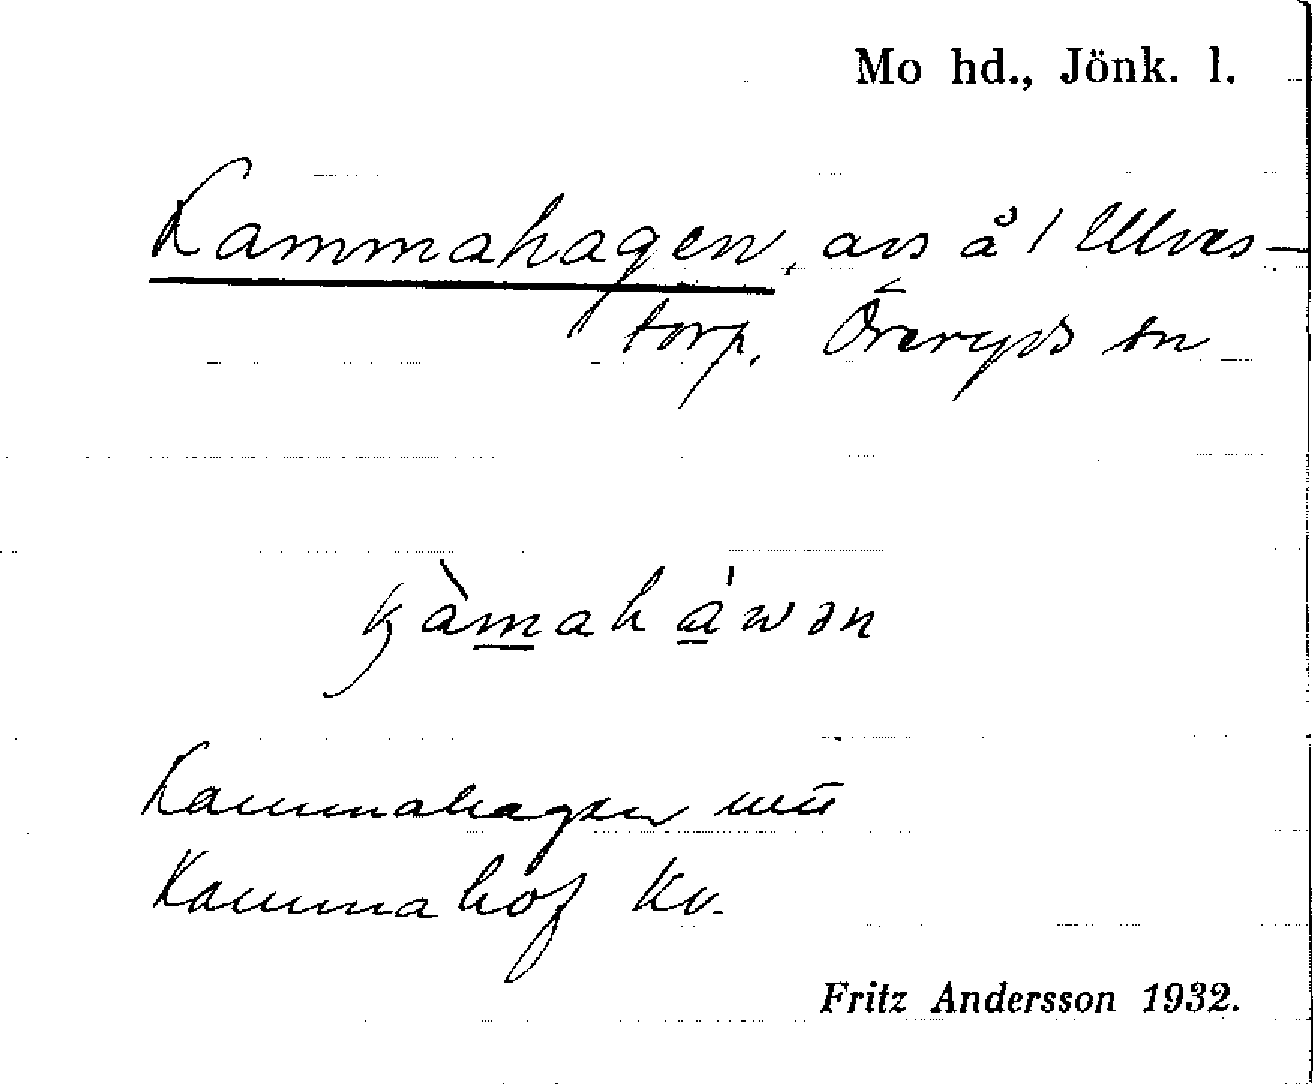 Mo hd., Jönk. l.
Kammahagen, avs å 1 Ulves-
torp, Öreryds sn
kàmaháwən
Kammahagen
Kammahof Kv.
Fritz Andersson 1932.